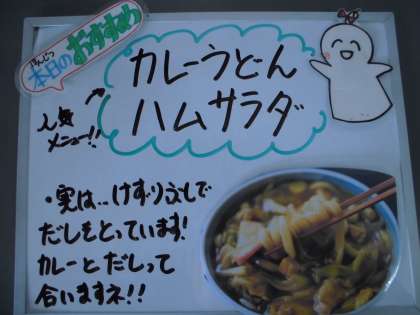 ほんじつ
本日のおすすめ
カレーうどん
ハムサラダ
人気
メニュー!!
・実は…けずりぶしで
だしをとっています!
カレーとだしって
合いますネ!!